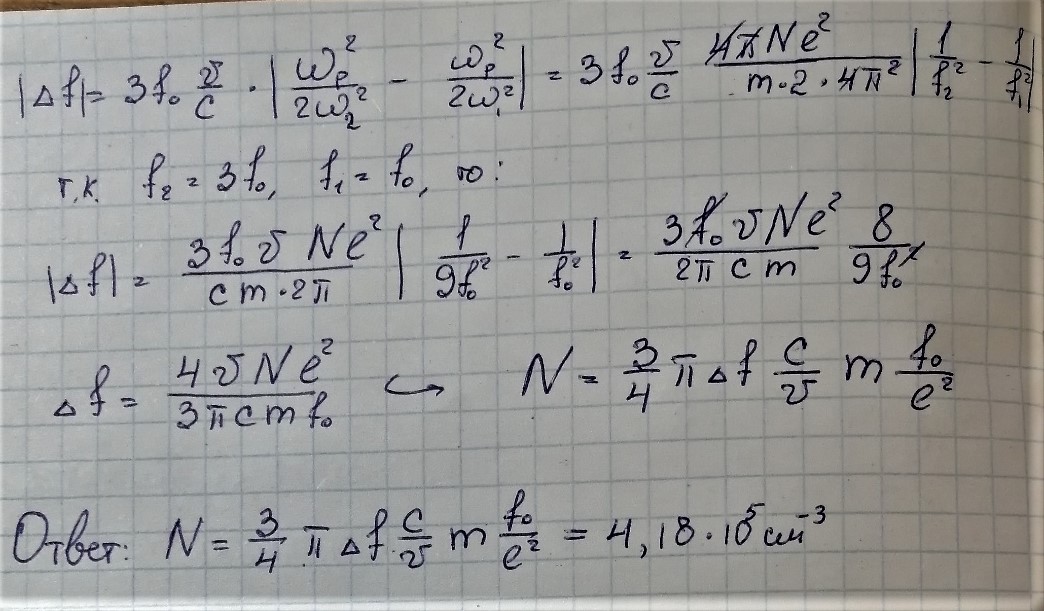 |Δf| = 3f₀ v/c · | ωₚ²/2ω₂² − ωₚ²/2ω₁² | = 3f₀ v/c 4πNe²/(m·2·4π²) | 1/f₂² − 1/f₁² |
т.к. f₂ = 3f₀, f₁ = f₀, то:
|Δf| = 3f₀vNe²/(cm·2π) | 1/9f₀² − 1/f₀² | = 3f₀vNe²/(2πcm) 8/9f₀²
Δf = 4vNe²/(3πcmf₀) ↪ N = 3/4 π Δf c/v m f₀/e²
Ответ: N = 3/4 π Δf c/v m f₀/e² = 4,18·10⁵ см⁻³